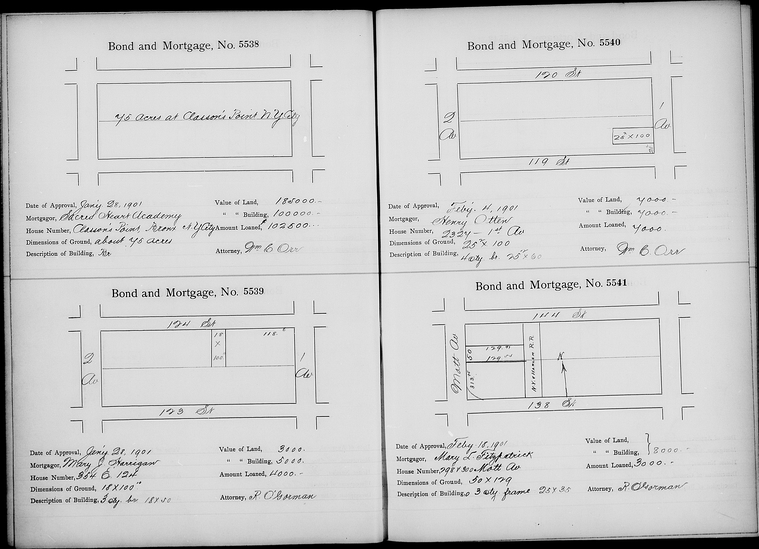 Bond and Mortgage, No. 5538
75 acres at Classon's Point N.Y. City
Date of Approval, Jan'y 28, 1901
Mortgagor, Sacred Heart Academy
House Number, Classon's Point, Bronx N.Y. City
Dimensions of Ground, about 75 acres
Description of Building,
Value of Land, 185000.-
" " Building, 100000.-
Amount Loaned, 102500...
Attorney, Wm C Orr
Bond and Mortgage, No. 5539
124 St
18 x 100
118.
2 Av
1 Av
123 St
Date of Approval, Jan'y 28, 1901
Mortgagor, Mary J. Harrigan
House Number, 354 E 124
Dimensions of Ground, 18 x 100
Description of Building, 3 sty br 18 x 50
Value of Land, 3000.
" " Building, 5000.
Amount Loaned, 4000.-
Attorney, R. O'Gorman
Bond and Mortgage, No. 5540
120 St
2 Av
1 Av
25 x 100
119 St
Date of Approval, Feby. 4, 1901
Mortgagor, Henry Otten
House Number, 2327 - 1st Av
Dimensions of Ground, 25 x 100
Description of Building, 4 sty br. 25 x
Value of Land, 7000.-
" " Building, 7000.-
Amount Loaned, 7000.
Attorney, Wm C Orr
Bond and Mortgage, No. 5541
144 St
Mott Av
50
N
138 St
Date of Approval, Feby 18, 1901
Mortgagor, Mary L. Fitzpatrick
House Number, Mott Av
Dimensions of Ground, 50 x 129
Description of Building, 3 sty frame 25 x 35
Value of Land,
" " Building, 8000.-
Amount Loaned, 3000.-
Attorney, R. O'Gorman